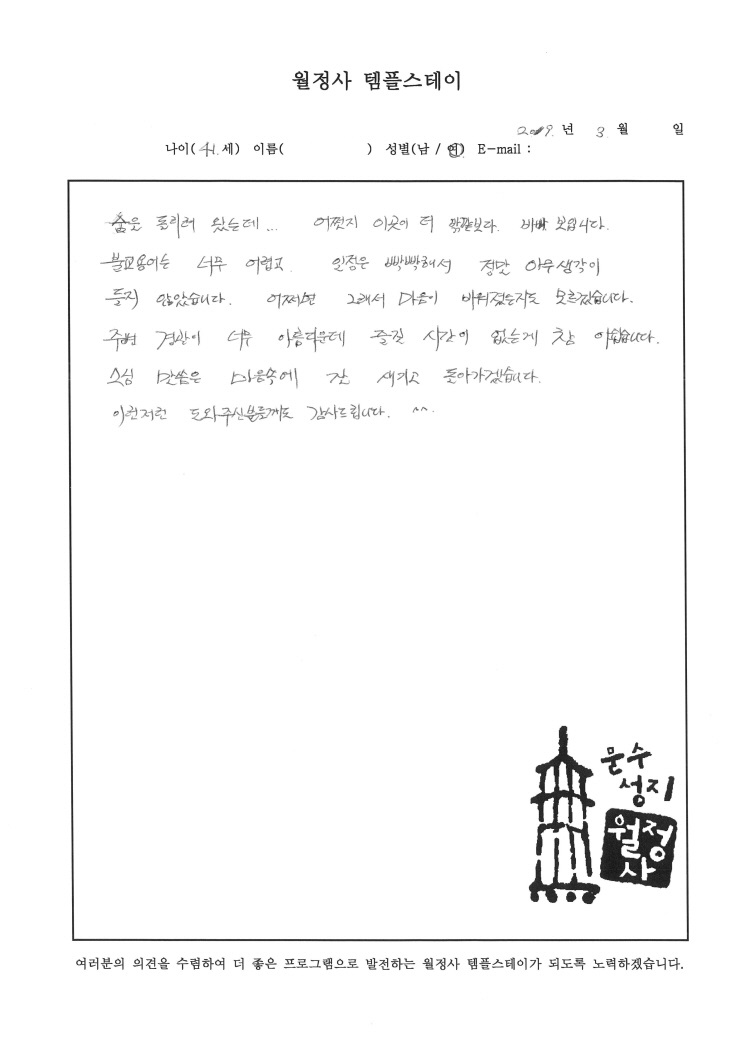 월정사 템플스테이
2009. 년 3 월 일
나이( 41.세) 이름( ) 성별(남 / 여) E-mail :
숨은 돌리러 왔는데... 어쩐지 이곳이 더 바빠 보입니다.
불교용어는 너무 어렵고. 일정은 빡빡해서 정말 아무생각이
들지 않았습니다. 어쩌면 그래서 마음이 비워졌는지도 모르겠습니다.
주변 경관이 너무 아름다운데 즐길 시간이 없는게 참 아쉽습니다.
스님 말씀은 마음속에 잘 새기고 돌아가겠습니다.
이런저런 도와주신분들께도 감사드립니다. ^^.
문수
성지
월정
사
여러분의 의견을 수렴하여 더 좋은 프로그램으로 발전하는 월정사 템플스테이가 되도록 노력하겠습니다.